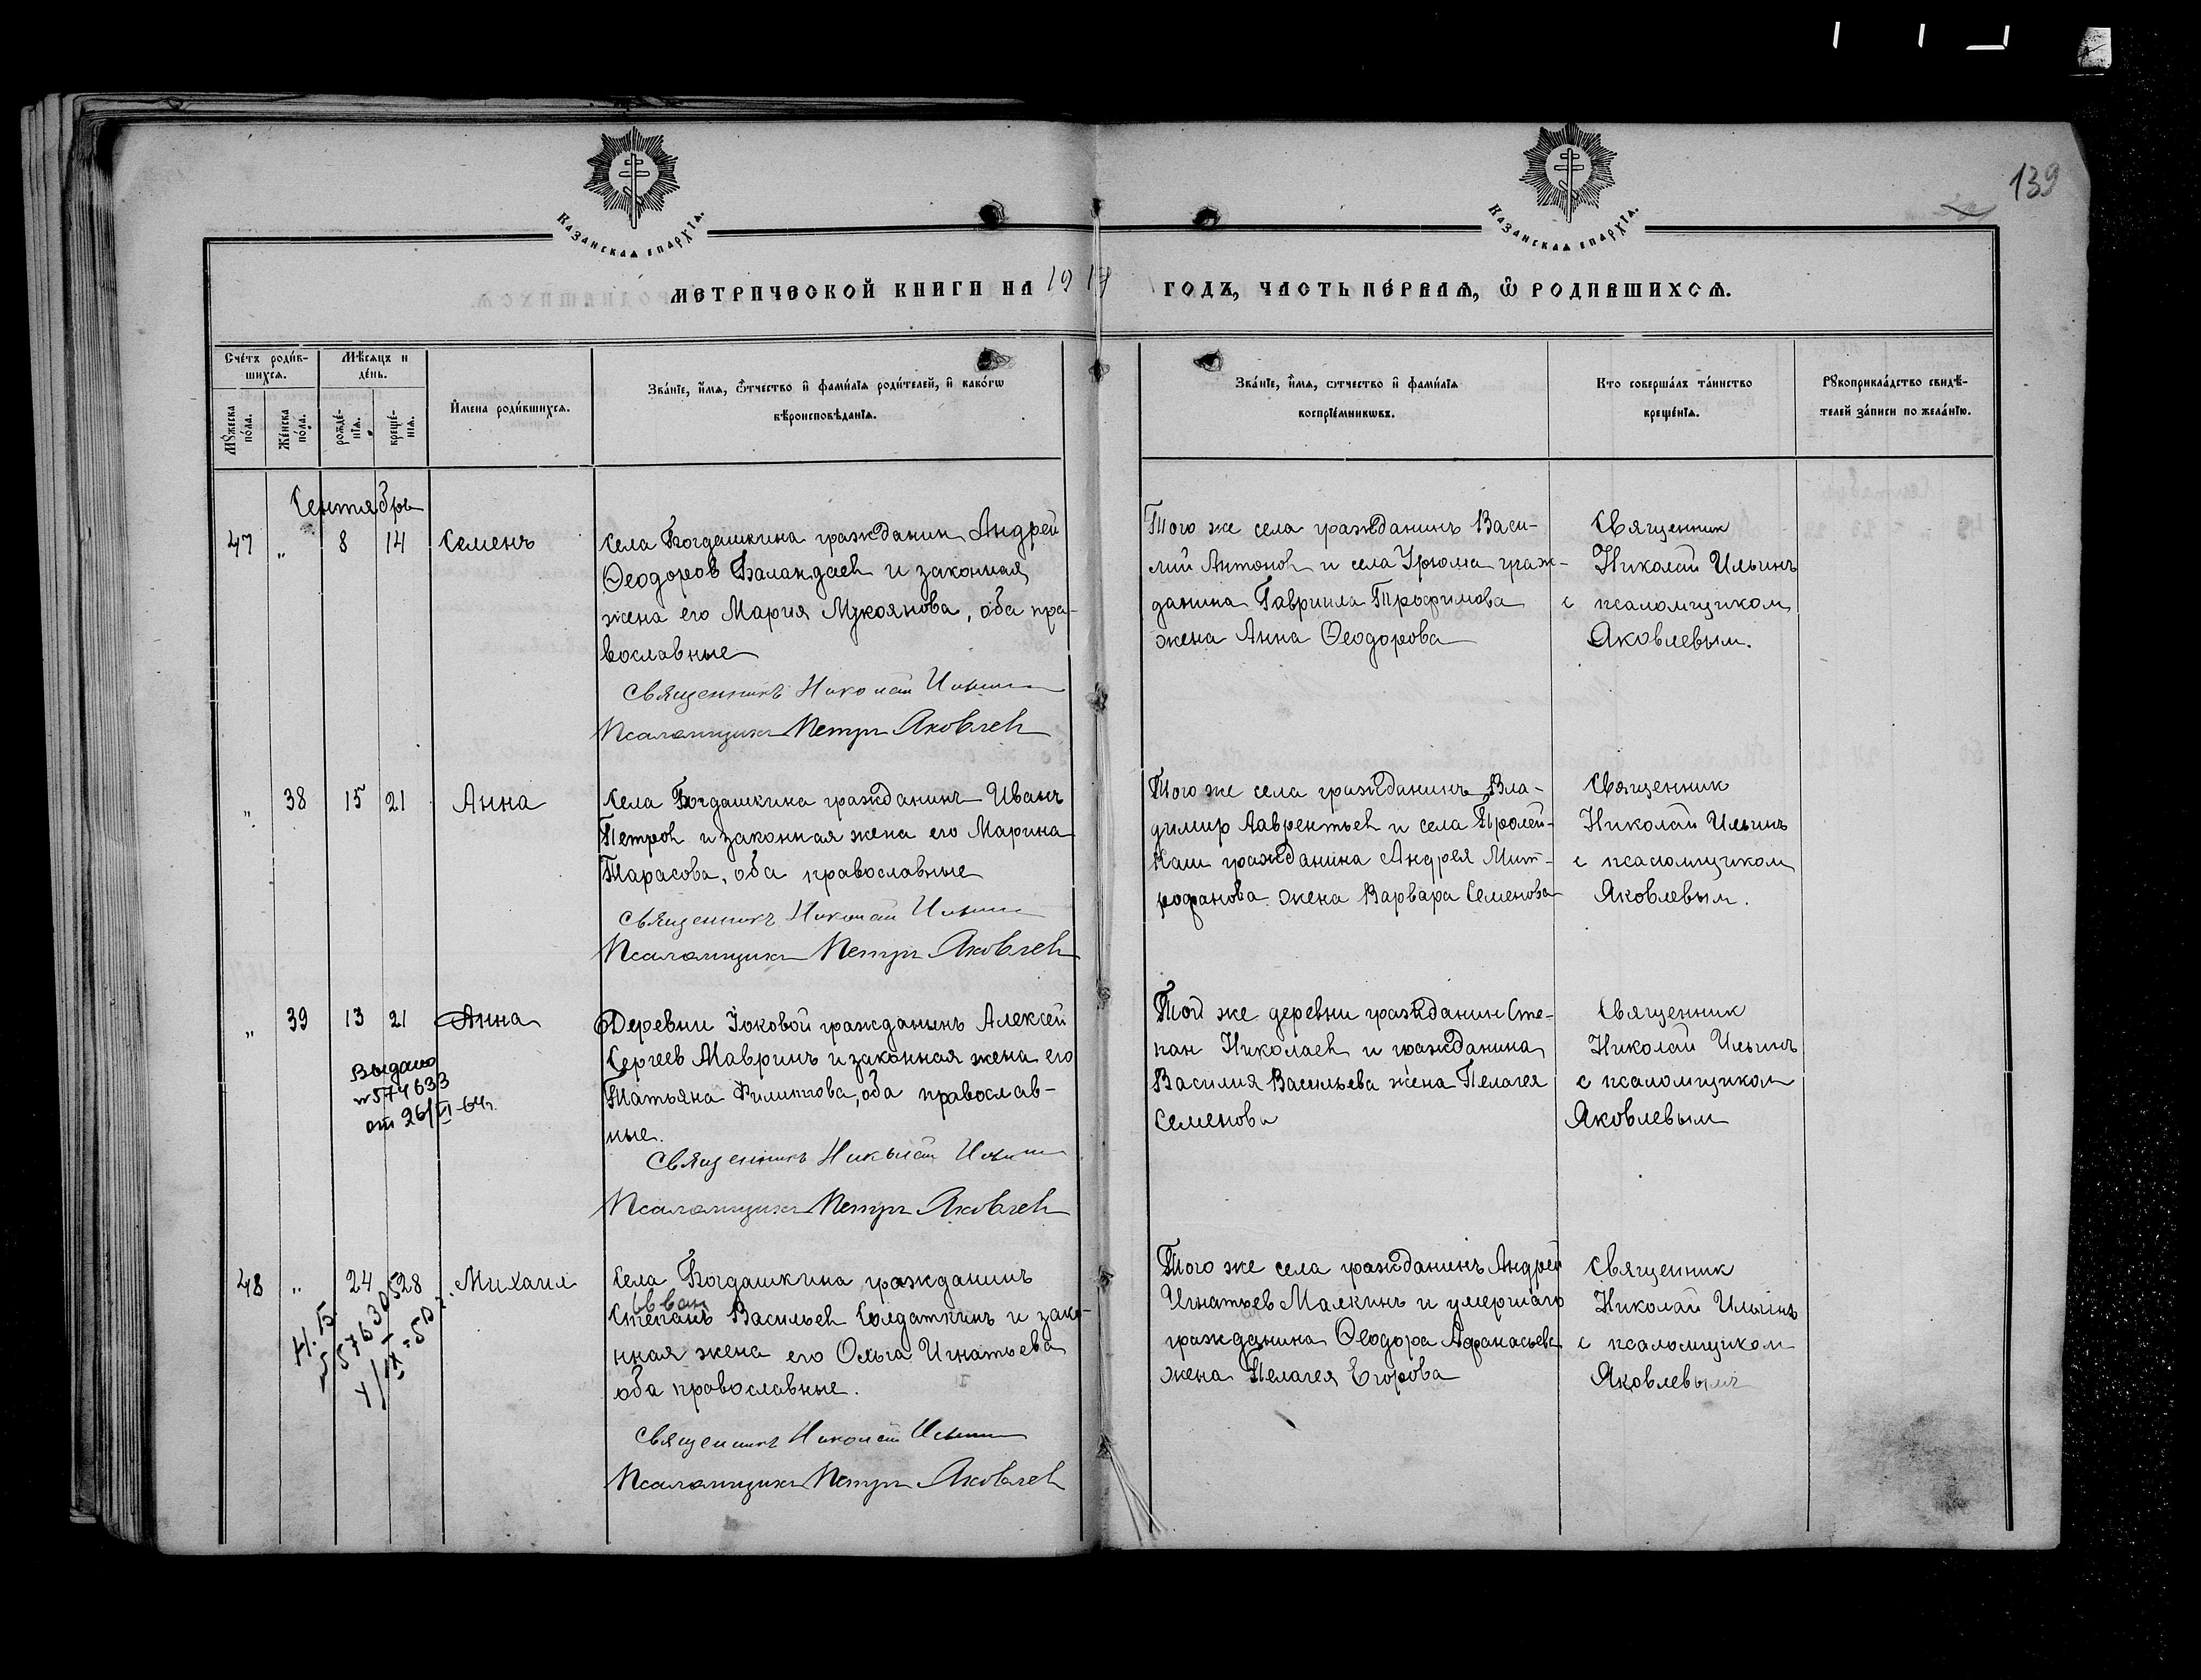 139
Казанская епархїя.
Казанская епархїя.
МЕТРИЧЕСКОЙ КНИГИ НА 1917 ГОДЪ, ЧАСТЬ ПЕРВАЯ, Ѿ РОДИВШИХСЯ.
Счетъ родив-
шихся.
Мѣсяцъ и
день.
Мужеска
пола.
Женска
пола.
рожде-
нїя.
креще-
нїя.
Имена родившихся.
Званїе, имя, ѻтчество и фамилїя родителей, и какогѡ
вѣроисповѣданїя.
Званїе, имя, ѻтчество и фамилїя
воспрїемникѡвъ.
Кто совершалъ таинство
крещенїя.
Рукоприкладство свидѣ-
телей записи по желанїю.
Сентября
47 " 8 14 Семенъ
Села Богдашкина гражданин Андрей
Ѳеодоров Баландаев и законная
жена его Мария Мукоянова, оба пра-
вославные
Священникъ Николай Ильин
Псаломщикъ Петръ Яковлев
Того же села гражданинъ Васи-
лий Антонов и села Урюма граж-
данина Гавриила Трофимова
жена Анна Ѳеодорова
Священник
Николай Ильинъ
с псаломщиком
Яковлевым.
" 38 15 21 Анна
Села Богдашкина гражданинъ Иванъ
Петров и законная жена его Марина
Тарасова, оба православные
Священникъ Николай Ильин
Псаломщикъ Петръ Яковлев
Того же села гражданинъ Вла-
димир Лаврентьев и села Пролей-
Каши гражданина Андрея Мит-
рофанова жена Варвара Семенова
Священник
Николай Ильинъ
с псаломщиком
Яковлевым.
" 39 13 21 Анна
Выдано
№574633
от 26/VI-64г.
Деревни Иоковой гражданинъ Алексей
Сергеев Мавринъ и законная жена его
Татьяна Филиппова, оба православ-
ные.
Священникъ Николай Ильин
Псаломщикъ Петръ Яковлев
Той же деревни гражданин Сте-
пан Николаев и гражданина
Василия Васильева жена Пелагея
Семенова
Священник
Николай Ильинъ
с псаломщиком
Яковлевым
48 " 24 28 Михаил
Села Богдашкина гражданинъ
Иван
Степанъ Васильев Солдаткинъ и зако-
нная жена его Ольга Игнатьева
оба православные.
Священникъ Николай Ильин
Псаломщикъ Петръ Яковлев
Того же села гражданинъ Андрей
Игнатьев Малкинъ и умершаго
гражданина Ѳеодора Афанасьева
жена Пелагея Егорова
Священник
Николай Ильинъ
с псаломщиком
Яковлевымъ